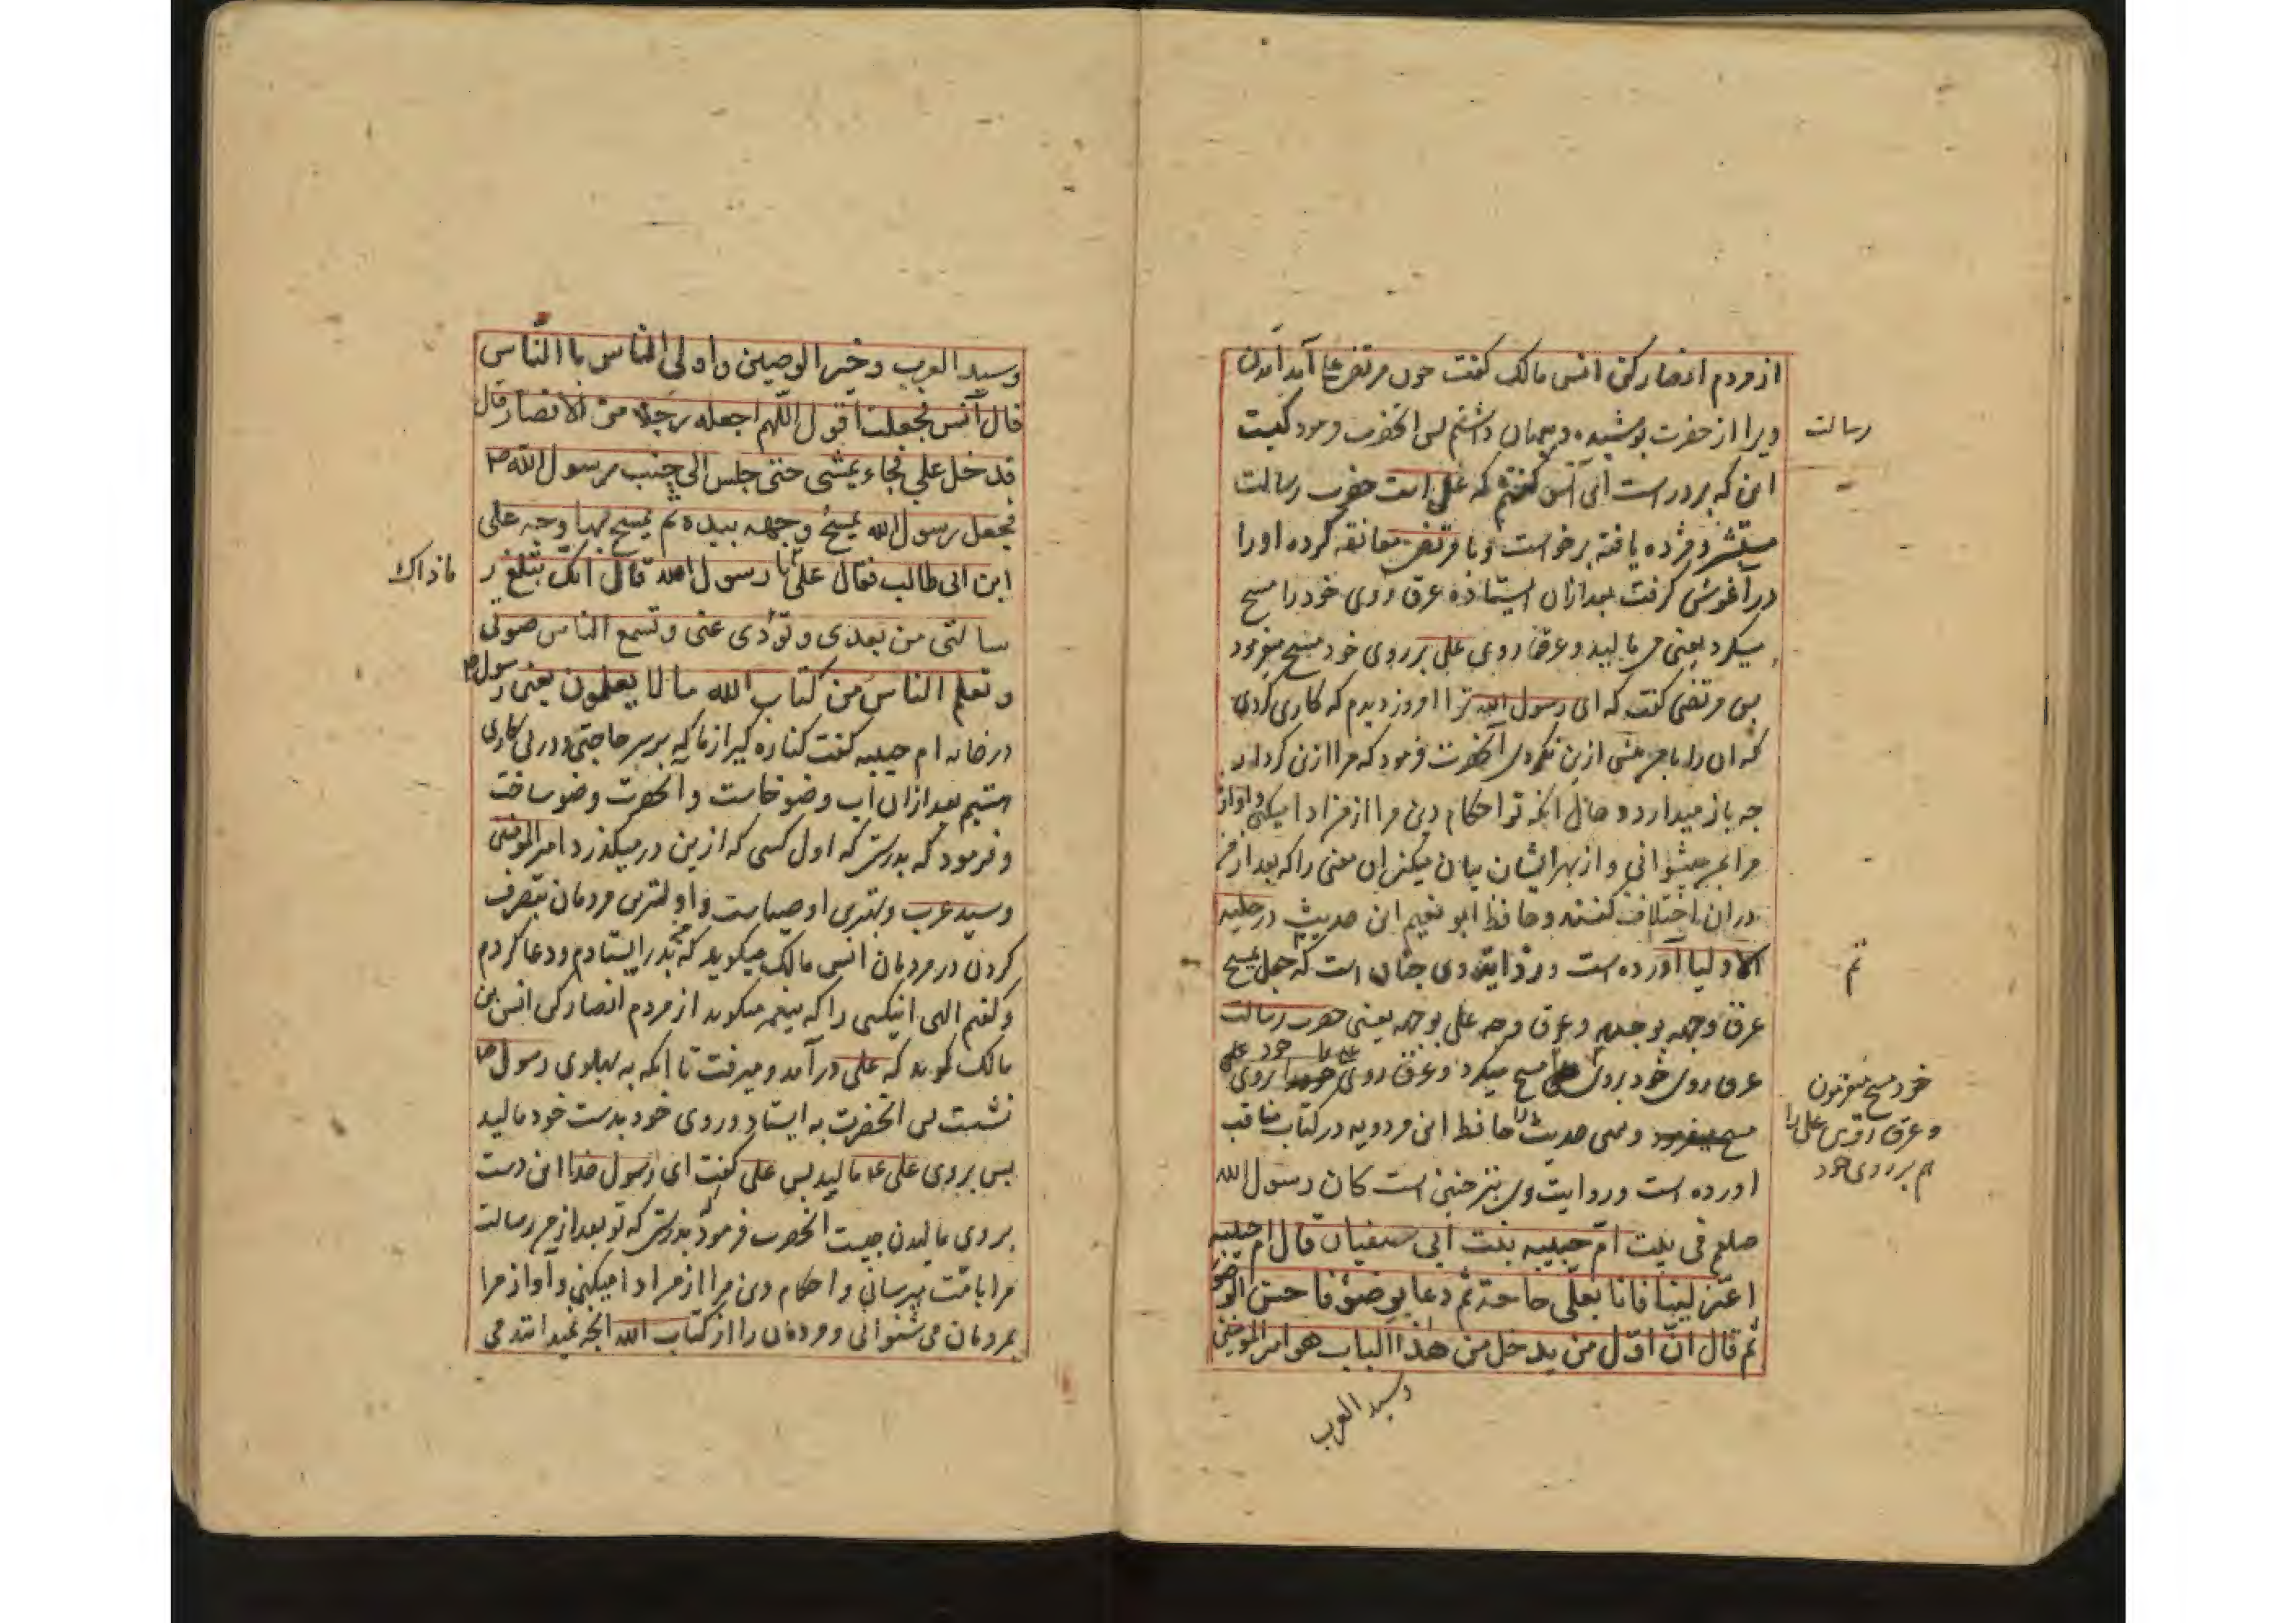 از مردم انصار کن انس مالک گفت چون مرتضی ع آمد آمدن
ویرا از حضرت پوشیده و پنهان داشتم پس آنحضرت فرمود کیست
رسالت
این که بر در است ای انس گفتم که علی است حضرت رسالت
مستبشر و مژده یافته برخواست و با مرتضی معانقه کرده او را
در آغوش گرفت بعد ازان ایستاده عرق روی خود را مسح
میکرد یعنی می مالید و عرق روی علی بر روی خود مسح میفرمود
پس مرتضی گفت که ای رسول الله ترا امروز دیدم که کاری کردی
که آن را با من پیش ازین نکردی آنحضرت فرمود که مرا ازین کردار
چه باز میدارد و حال آنکه تو احکام دین مرا از من ادا میکنی و آواز
مرا بمردم میشنوانی و از بهر ایشان بیان میکنی آن معنی را که بعد از من
دران اختلاف کنند و حافظ ابو نعیم این حدیث در حلیه
الاولیا آورده است و روایت وی چنان است که جعل یمسح
ثم
عرق وجهه بوجهه و عرق وجه علی بوجهه یعنی حضرت رسالت
عرق روی خود بروی مسح میکرد و عرق روی علی خود بروی
خود مسح میفرمود
و عرق روی علی را
هم بر روی خود
مسح میفرمود و همین حدیث را حافظ ابن مردویه در کتاب مناقب
آورده است و روایت وی نیز چنین است کان رسول الله
صلعم فی بیت ام حبیبه بنت ابی سفیان قال ام حبیبه
اعتزلینا فانا بعلی حاجة ثم دعا بوضوء فاحسن الوضو
ثم قال ان اوّل من یدخل من هذا الباب هو امیر المومنین
وسید العرب
وسید العرب و خیر الوصیین و اولی الناس با الناس
قال انس فجعلت اقول اللهم اجعله رجلا من الانصار قال
فدخل علی فجاء یمشی حتی جلس الی جنب رسول الله ص
فجعل رسول الله یمسح وجهه بیده ثم یمسح بها وجه علی
ابن ابی طالب فقال علی یا رسول الله قال انک تبلغ ر
ما ذاک
سالتی من بعدی و تؤدی عنی و تسمع الناس صوتی
و تعلم الناس من کتاب الله ما لا یعلمون یعنی رسول ص
در خانه ام حبیبه گفت کناره گیر از ما که بر سر حاجتی و در پی کاری
هستیم بعد ازان آب وضو خاست و آنحضرت وضو ساخت
و فرمود که بدرستی که اول کسی که ازین در میگذرد امیر المومنین
و سید عرب و بهترین اوصیاست و اولیترین مردمان بتصرف
کردن در مردمان انس مالک میگوید که من بدر ایستادم و دعا کردم
و گفتم الهی اینکسی را که پیغمبر میگوید از مردم انصار کن انس بن
مالک گوید که علی درآمد و میرفت تا آنکه به پهلوی رسول ص
نشست پس آنحضرت به ایستاد و روی خود بدست خود مالید
پس بروی علی ع مالید پس علی گفت ای رسول خدا این دست
بروی مالیدن چیست آنحضرت فرمود بدرستی که تو بعد از من رسالت
مرا بامت میرسانی و احکام دین مرا از من ادا میکنی و آواز مرا
بمردمان می شنوانی و مردمان را از کتاب الله آنچه نمیدانند می